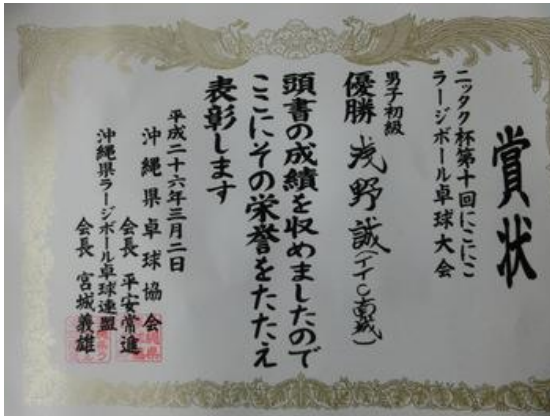 賞状
ニッタク杯第十回にこにこ
ラージボール卓球大会
男子初級
優勝 浅野誠(TTC南城)
頭書の成績を収めましたので
ここにその栄誉をたたえ
表彰します
平成二十六年三月二日
沖縄県卓球協会
会長 平安常進
沖縄県ラージボール卓球連盟
会長 宮城義雄